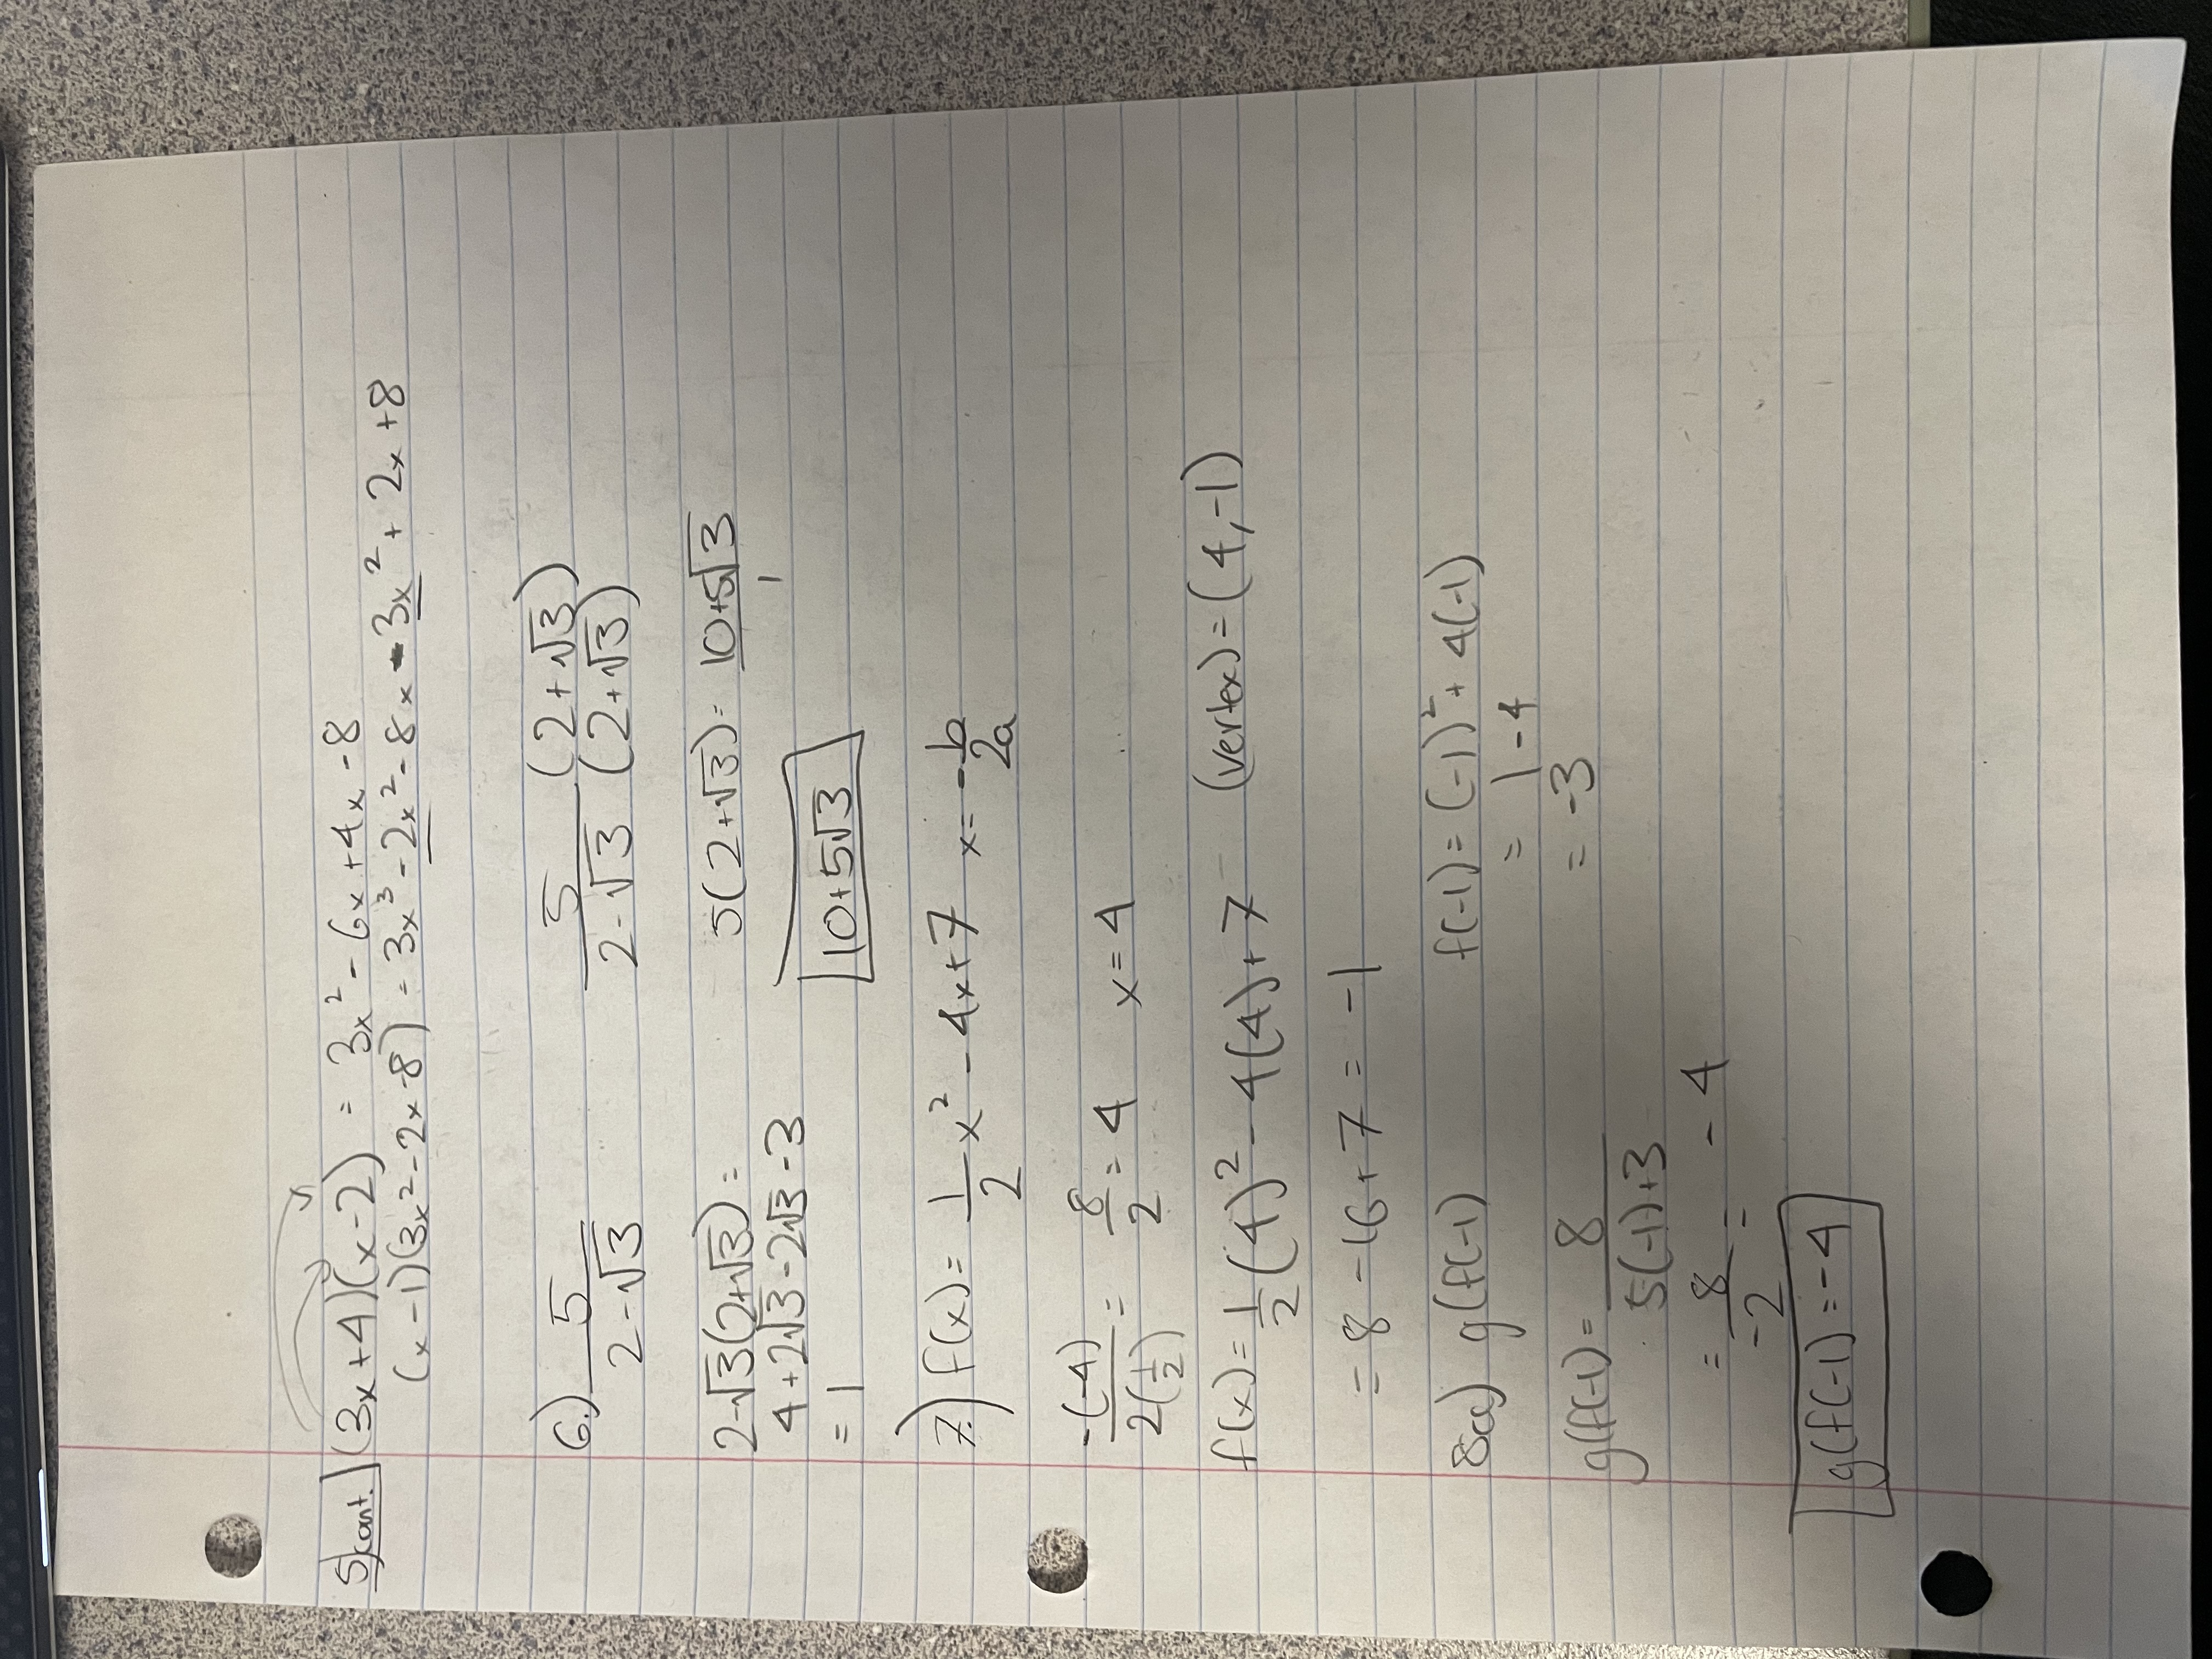 5)cont.] (3x+4)(x-2) = 3x² - 6x + 4x - 8
(x-1)(3x²-2x-8) = 3x³ - 2x² - 8x - 3x² + 2x + 8
6.) 5/(2-√3)    5/(2-√3) (2+√3)/(2+√3)
2-√3(2+√3) =    5(2+√3) = (10+5√3)/1
4+2√3-2√3-3
= 1    10+5√3
7.) f(x) = 1/2 x² - 4x + 7    x = -b/2a
-(-4)/2(1/2) = 8/2 = 4    x = 4
f(x) = 1/2 (4)² - 4(4) + 7    (vertex) = (4,-1)
= 8 - 16 + 7 = -1
8a) g(f(-1)    f(-1) = (-1)² + 4(-1)
= 1 - 4
= -3
g(f(-1) = 8/(5(-1)+3)
= 8/-2 = -4
g(f(-1) = -4